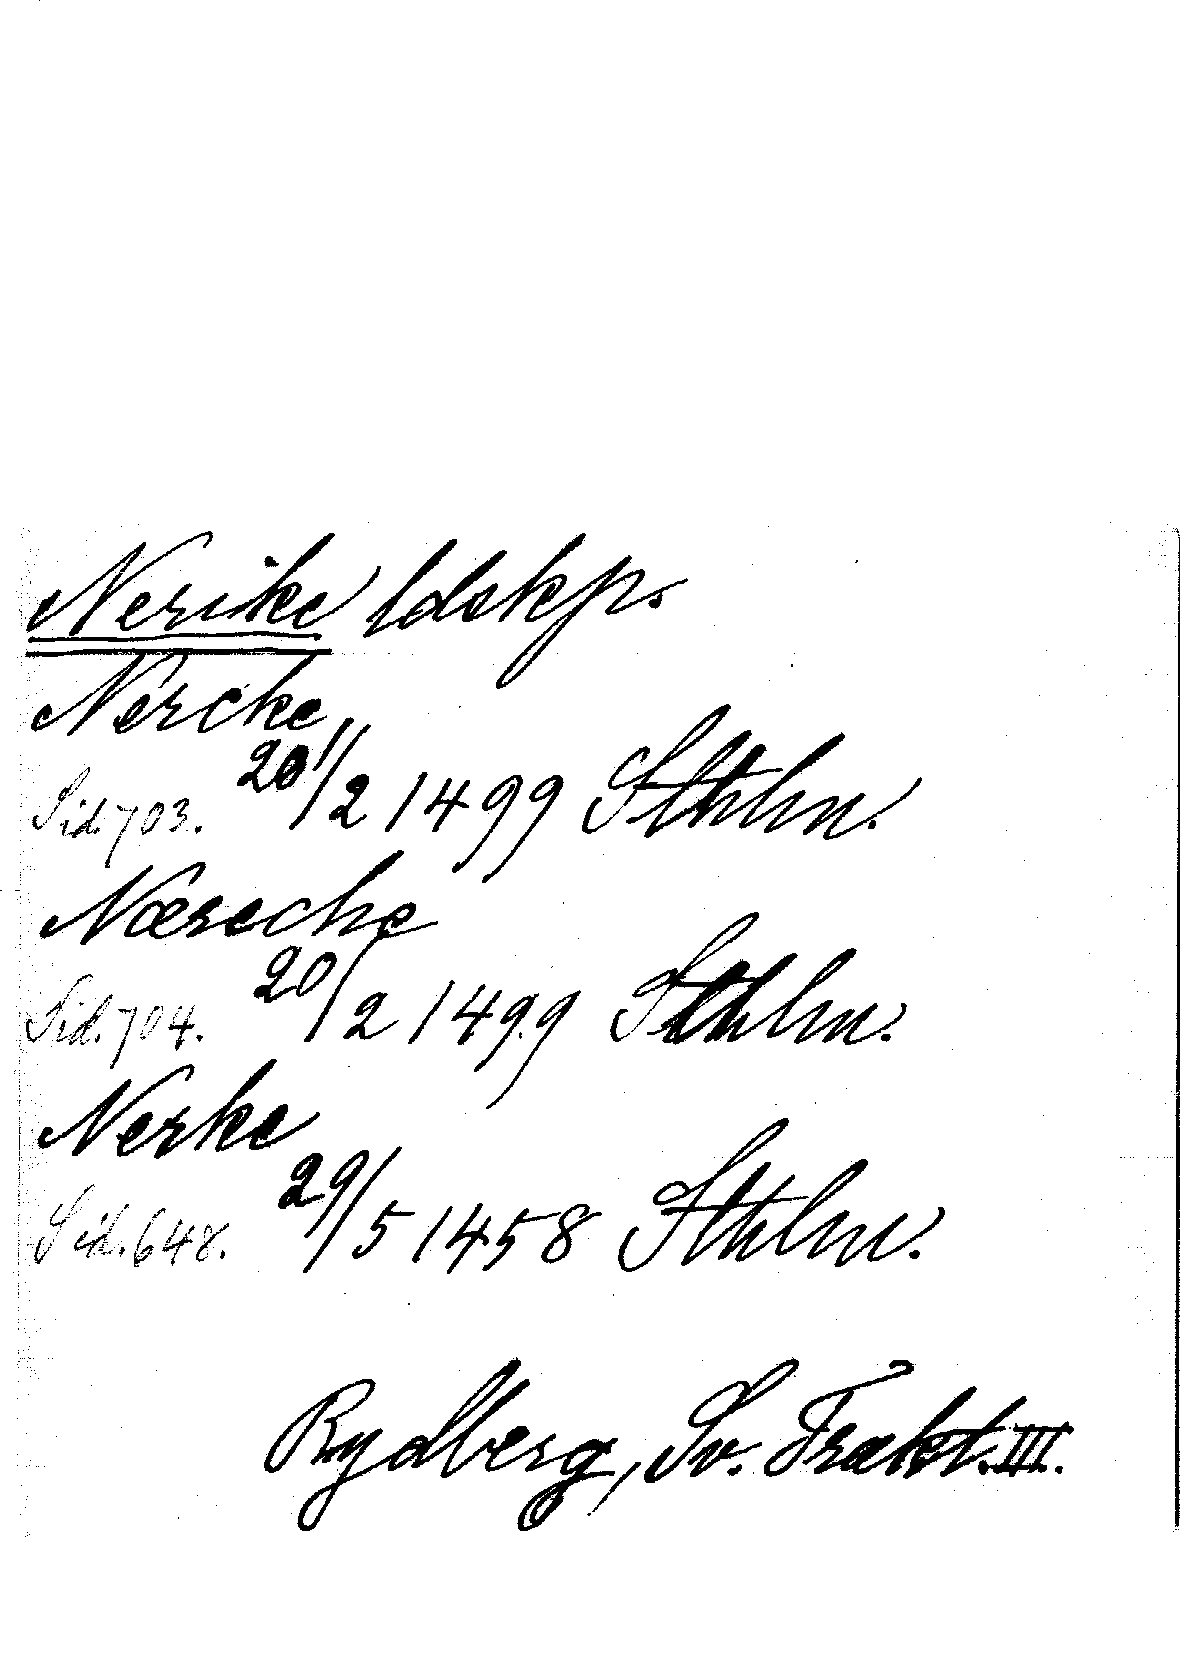 Nerike ldskp.
Nercke
Sid. 703. 20/2 1499 Sthlm.
Næreche
Sid. 704. 20/2 1499 Sthlm.
Nerke
Sid. 648. 29/5 1458 Sthlm.
Rydberg, Sv. Trakt. III.